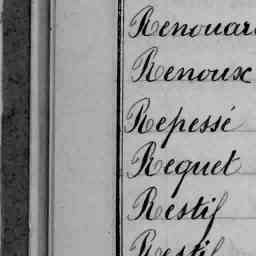 Renouard
Renoux
Repessé
Requet
Restif
Restif